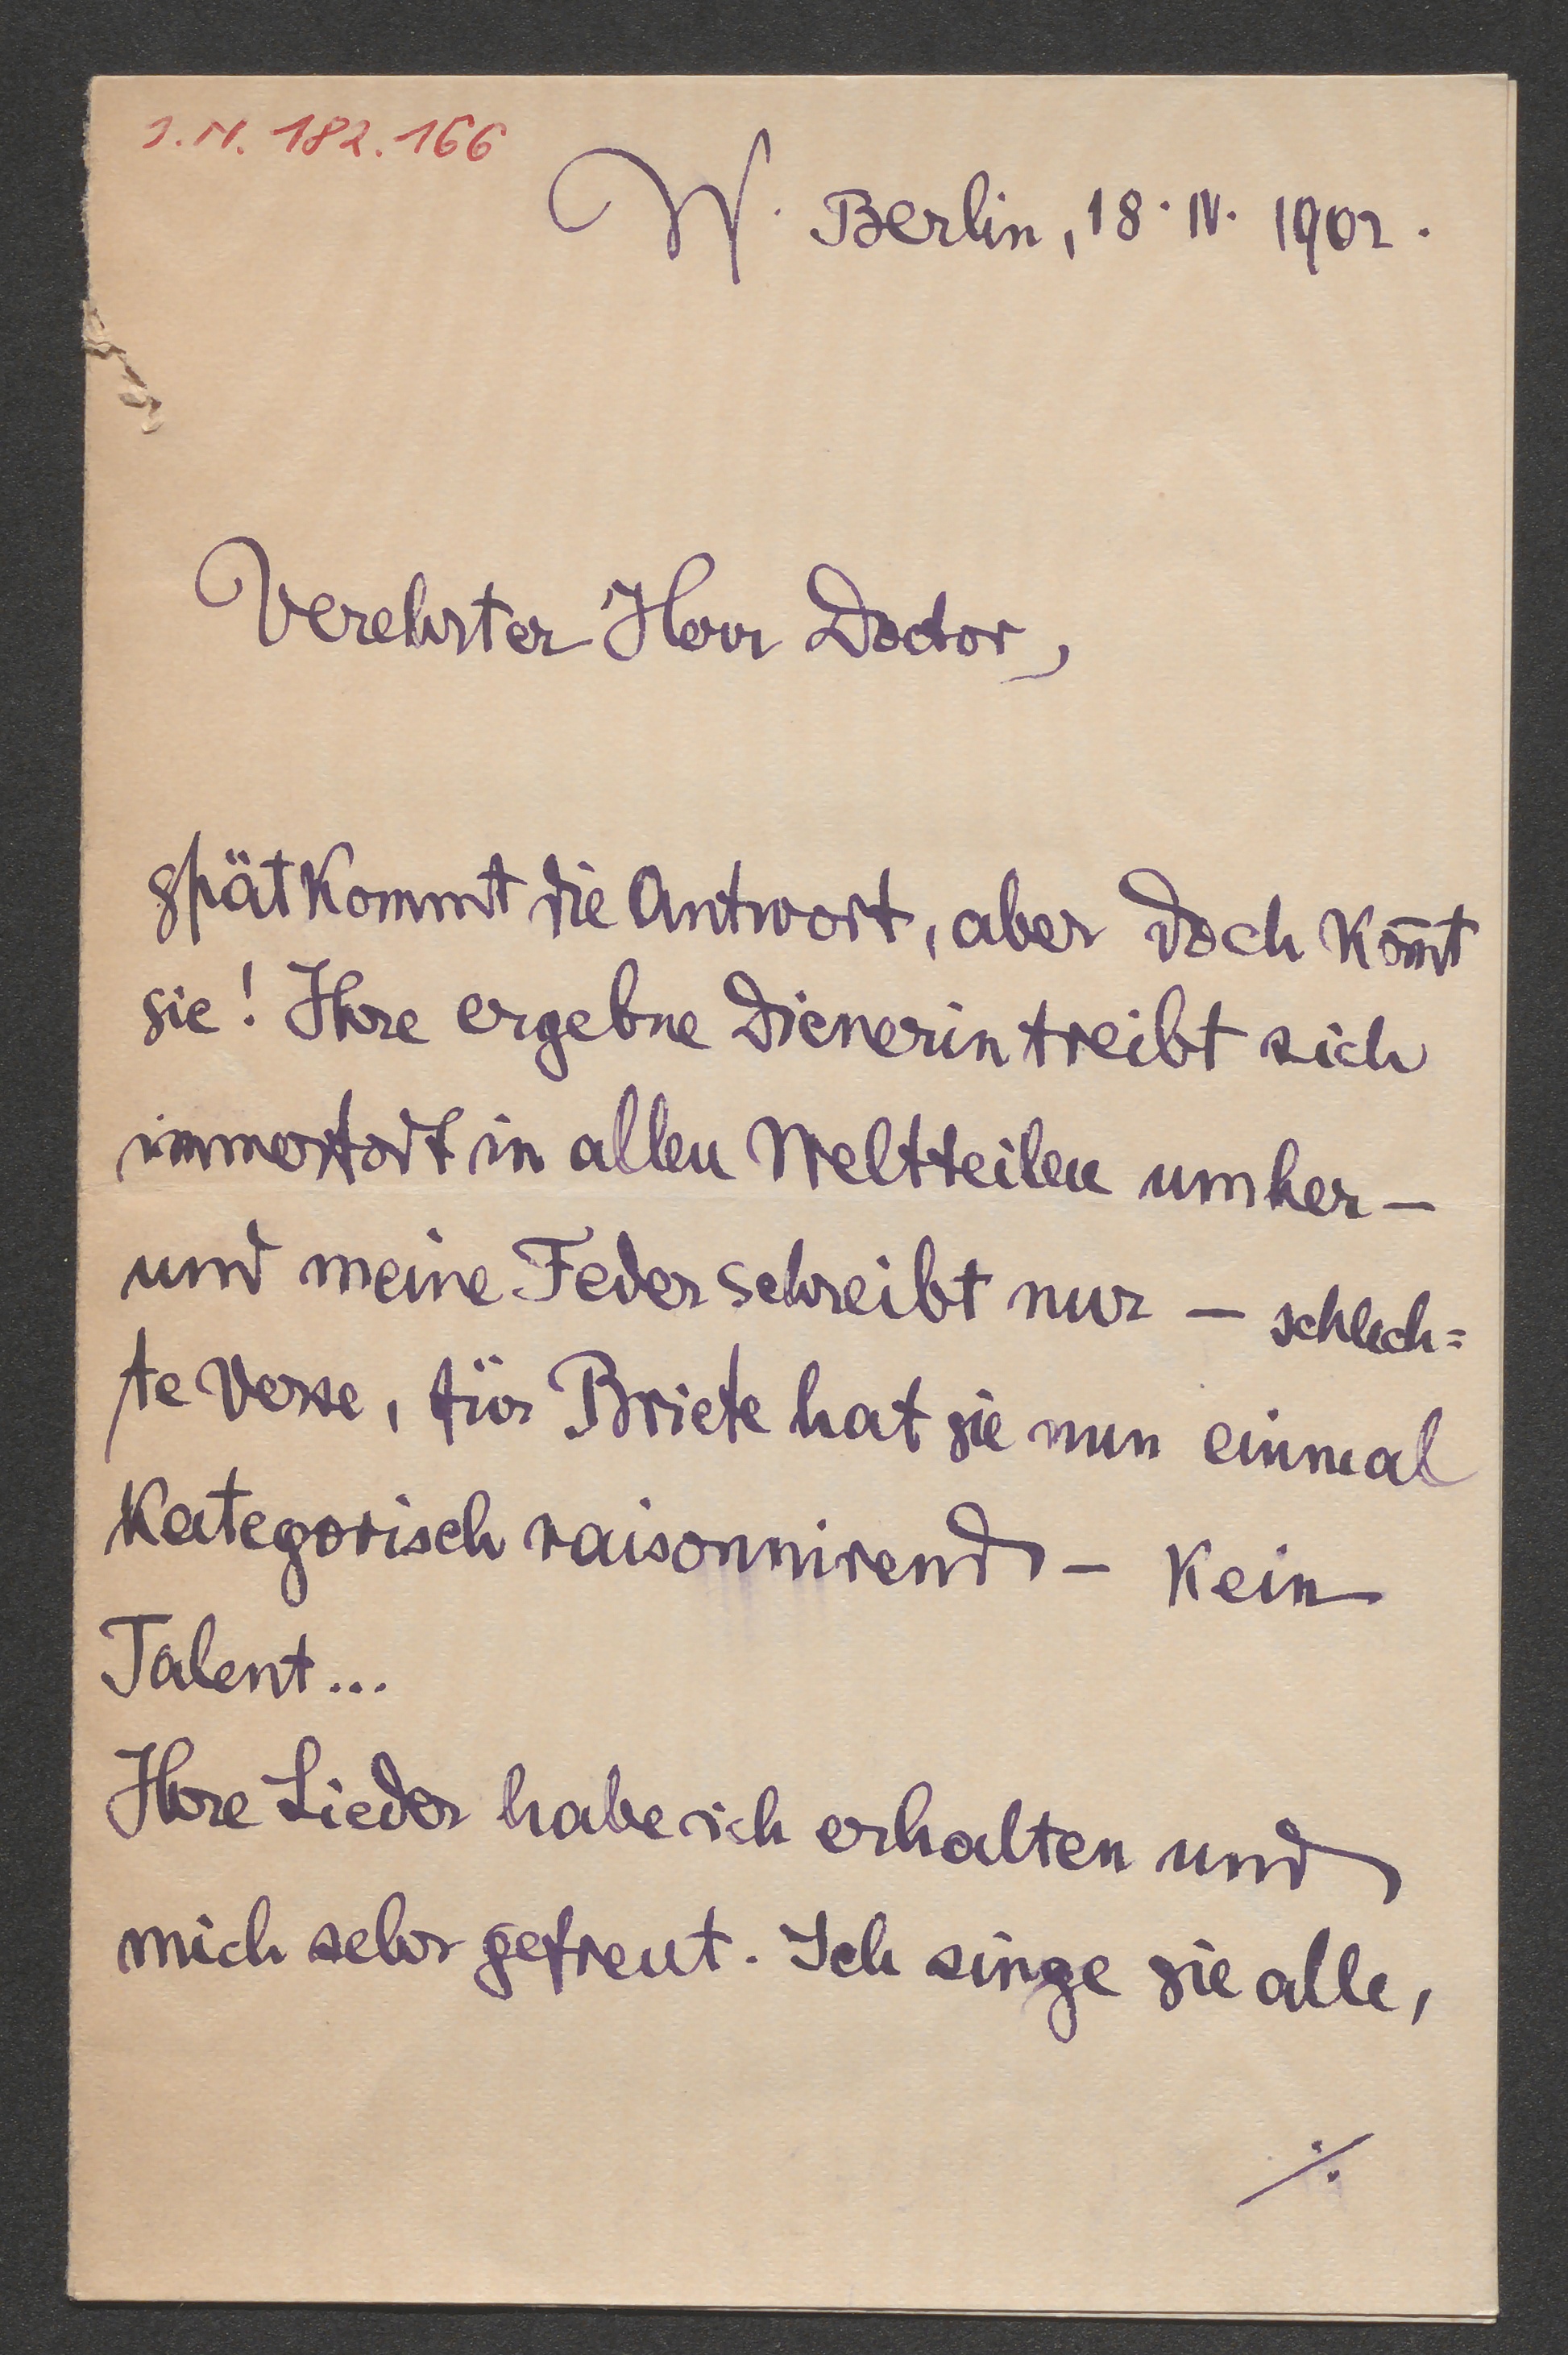 I.N. 182.166
W. Berlin, 18. IV. 1902.
Verehrter Herr Doctor,
spät kommt die Antwort, aber doch kom̄t
sie! Ihre ergebne Dienerin treibt sich
immerfort in allen Weltteilen umher –
und meine Feder schreibt nur – schlech=
te Verse, für Briefe hat sie nun einmal
kategorisch raisonnirend – kein
Talent...
Ihre Lieder habe ich erhalten und
mich sehr gefreut. Ich singe sie alle,
./.